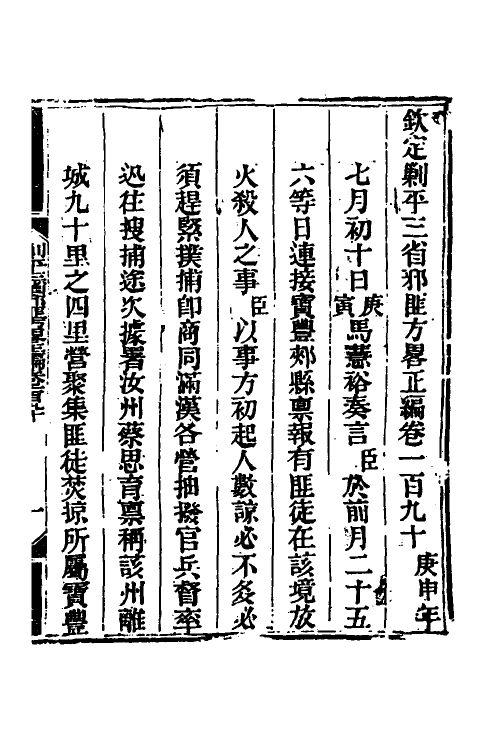 欽定剿平三省邪匪方畧正編卷一百九十 庚申年
七月初十日庚寅馬慧裕奏言臣於前月二十五
六等日連接寶豐郟縣禀報有匪徒在該境放
火殺人之事臣以事方初起人數諒必不多必
須趕緊撲捕卽商同滿漢各營抽撥官兵督率
迅往搜捕途次據署汝州蔡思育禀稱該州離
城九十里之四里營聚集匪徒焚掠所屬寶豐
一